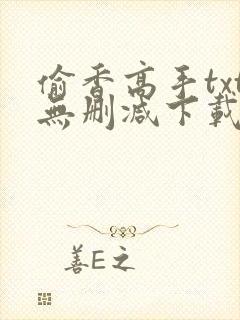 偷香高手txt
無刪減下載
善E之